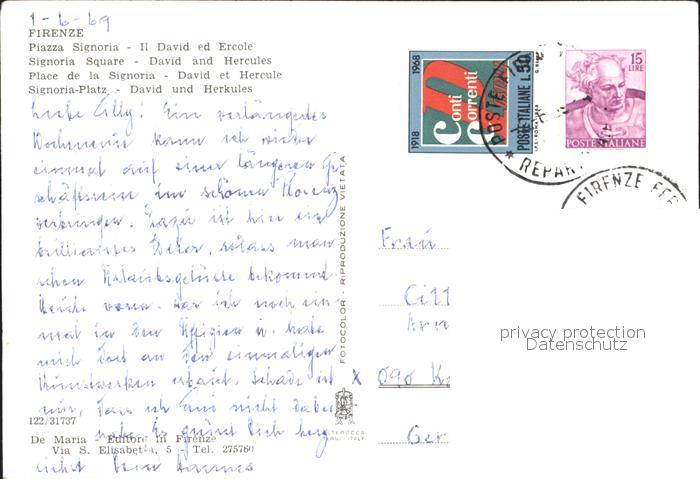 1-6-69
FIRENZE
Piazza Signoria - Il David ed Ercole
Signoria Square - David and Hercules
Place de la Signoria - David et Hercule
Signoria-Platz - David und Herkules
Liebe Cilly! Ein verlängertes
Wochenende kann ich wieder
einmal auf einer längeren Ge-
schäftsreise im schönen Florenz
verbringen. Dazu ist hier ein
brilliantes Wetter, sodass man
schon Urlaubsgelüste bekommt.
Heute war ich noch ein-
mal in den Uffizien u. habe
mich dort an den einmaligen
Kunstwerken erbaut. Schade ist
nur, dass ich Euch nicht dabei
habe. Es grüsst Dich herz-
lichst Dein Hannes
122/31737
De Maria - Editore in Firenze
Via S. Elisabetta, 5 - Tel. 275760
FOTOCOLOR - RIPRODUZIONE VIETATA
1918 1968
Conti Correnti Postali
POSTE ITALIANE L. 50
15 LIRE
POSTE ITALIANE
POSTE
REPAR
FIRENZE FER
Frau
Cill
6090
Ger
privacy protection
Datenschutz